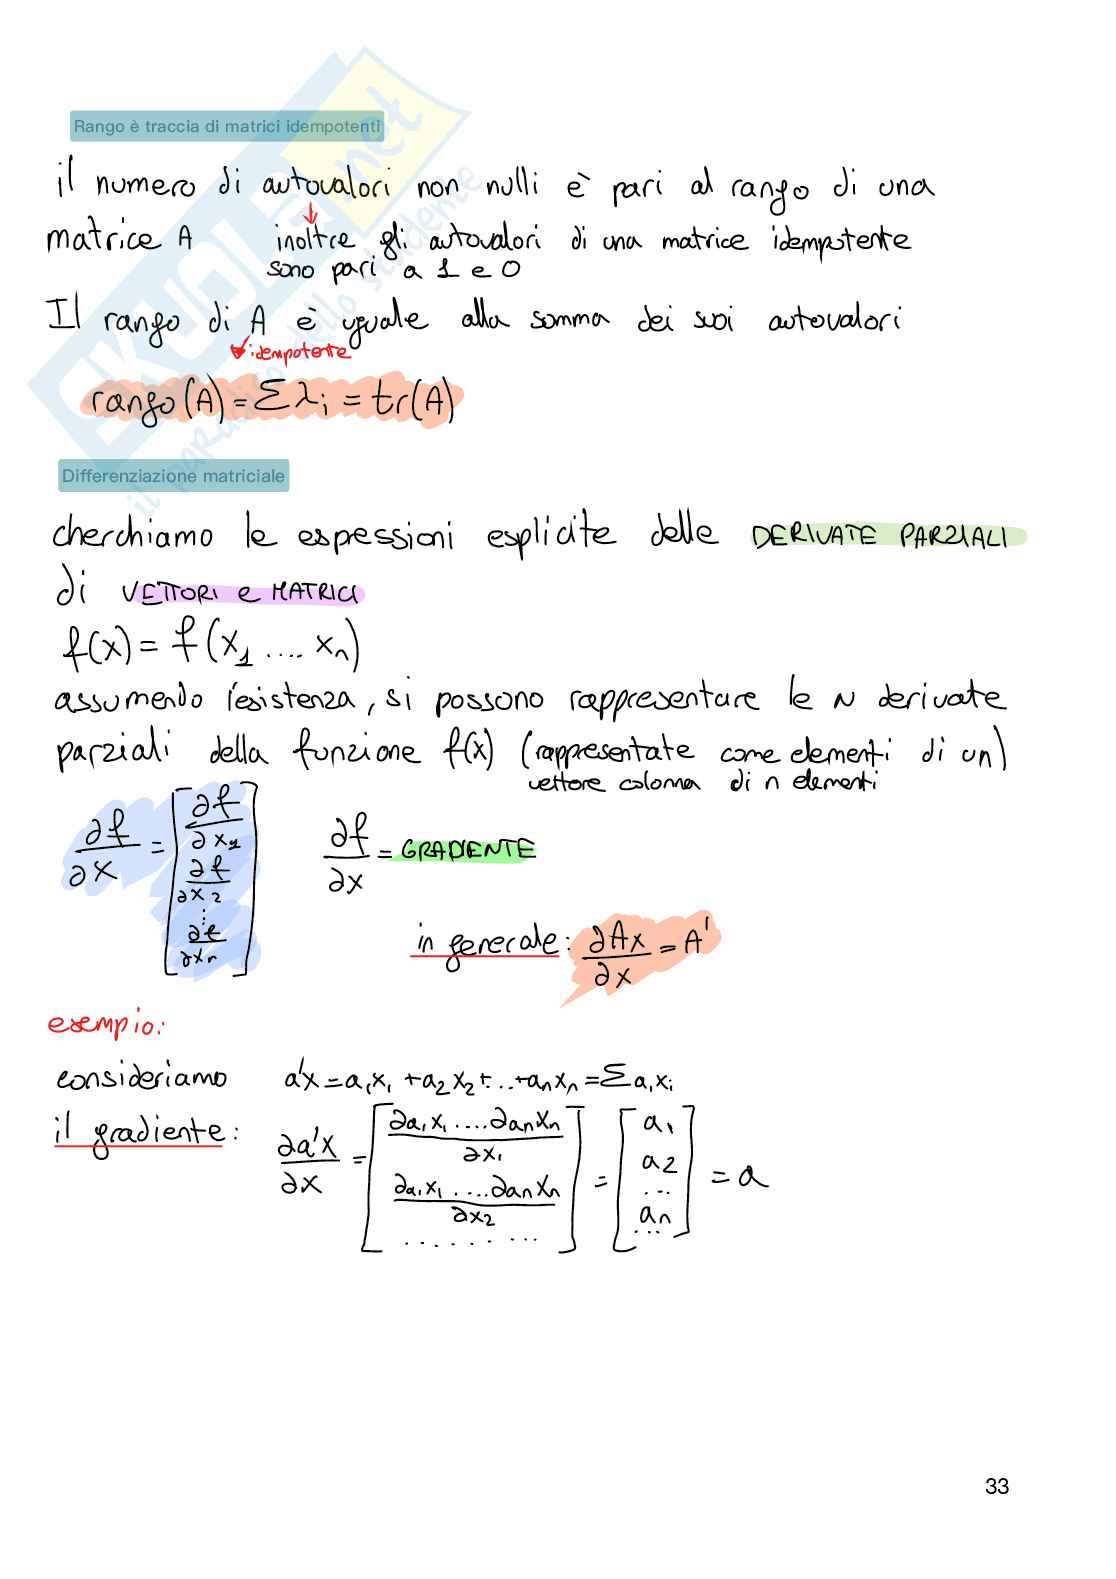 SKUOLA.net
il paradiso dello studente
Rango è traccia di matrici idempotenti
il numero di autovalori non nulli è pari al rango di una
matrice A inoltre gli autovalori di una matrice idempotente
sono pari a 1 e 0
Il rango di A è uguale alla somma dei suoi autovalori
idempotente
rango(A) = Σλi = tr(A)
Differenziazione matriciale
cerchiamo le espressioni esplicite delle DERIVATE PARZIALI
di VETTORI e MATRICI
f(x) = f(x1 .... xn)
assumendo l'esistenza, si possono rappresentare le N derivate
parziali della funzione f(x) (rappresentate come elementi di un)
vettore colonna di n elementi
∂f/∂x = [∂f/∂x1 ∂f/∂x2 ⋮ ∂f/∂xn] ∂f/∂x = GRADIENTE
in generale: ∂Ax/∂x = A'
esempio:
consideriamo a'x = a1x1 + a2x2 + ... + anxn = Σaixi
il gradiente: ∂a'x/∂x = [∂a1x1....∂anxn/∂x1 ∂a1x1....∂anxn/∂x2 .........] = [a1 a2 ... an ...] = a
33